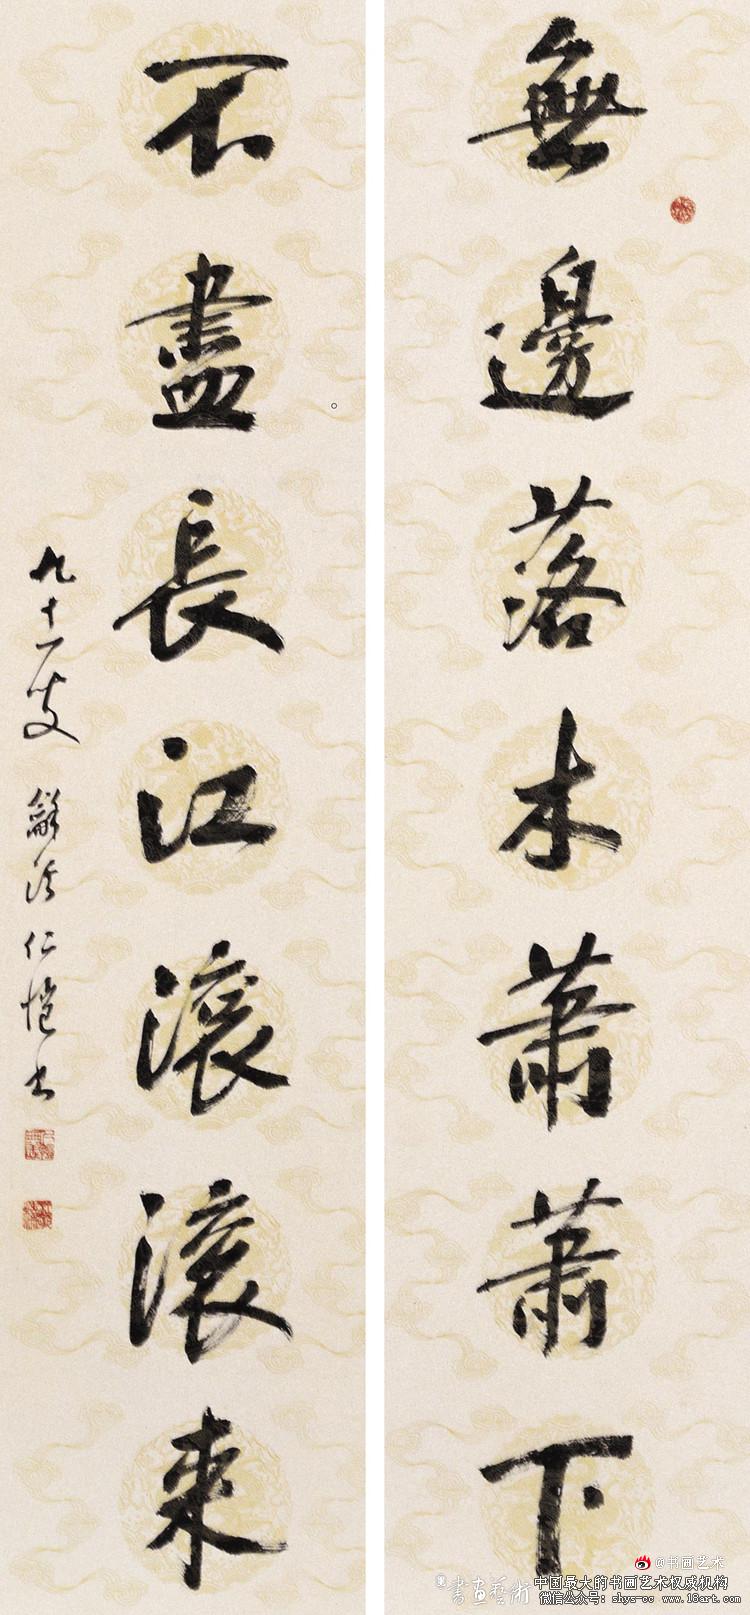 無邊落木蕭蕭下
不盡長江滾滾來
九十一叟 龢溪仁愷書
@书画艺术
書畫藝術
中国最大的书画艺术权威机构
微信公众号: shys-cc www.18art.com